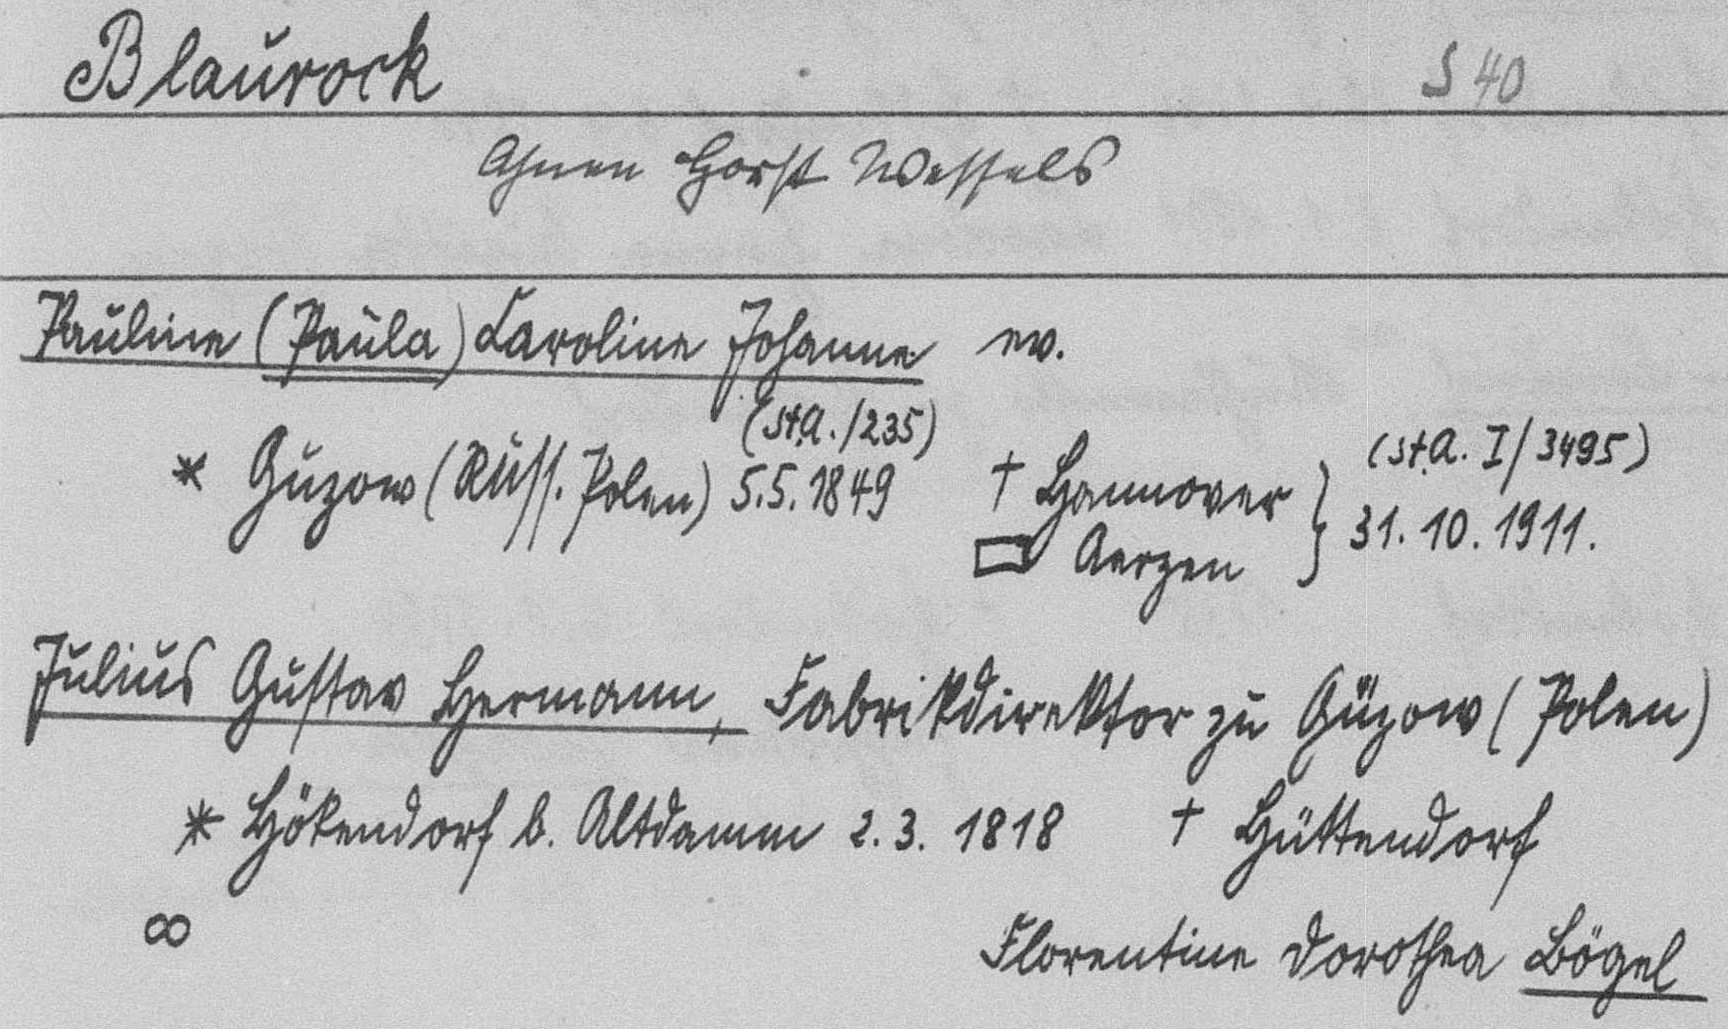 Blaurock S 40
Ahnen Horst Wessels
Pauline (Paula) Caroline Johanne ev.
(St.A./235) (St.A. I/3495)
* Guzow (Russ. Polen) 5.5.1849 † Hannover } 31.10.1911.
▭ Aerzen
Julius Gustav Hermann, Fabrikdirektor zu Guzow (Polen)
* Hökendorf b. Altdamm 2.3.1818 † Hüttendorf
∞ Florentine Dorothea Bögel